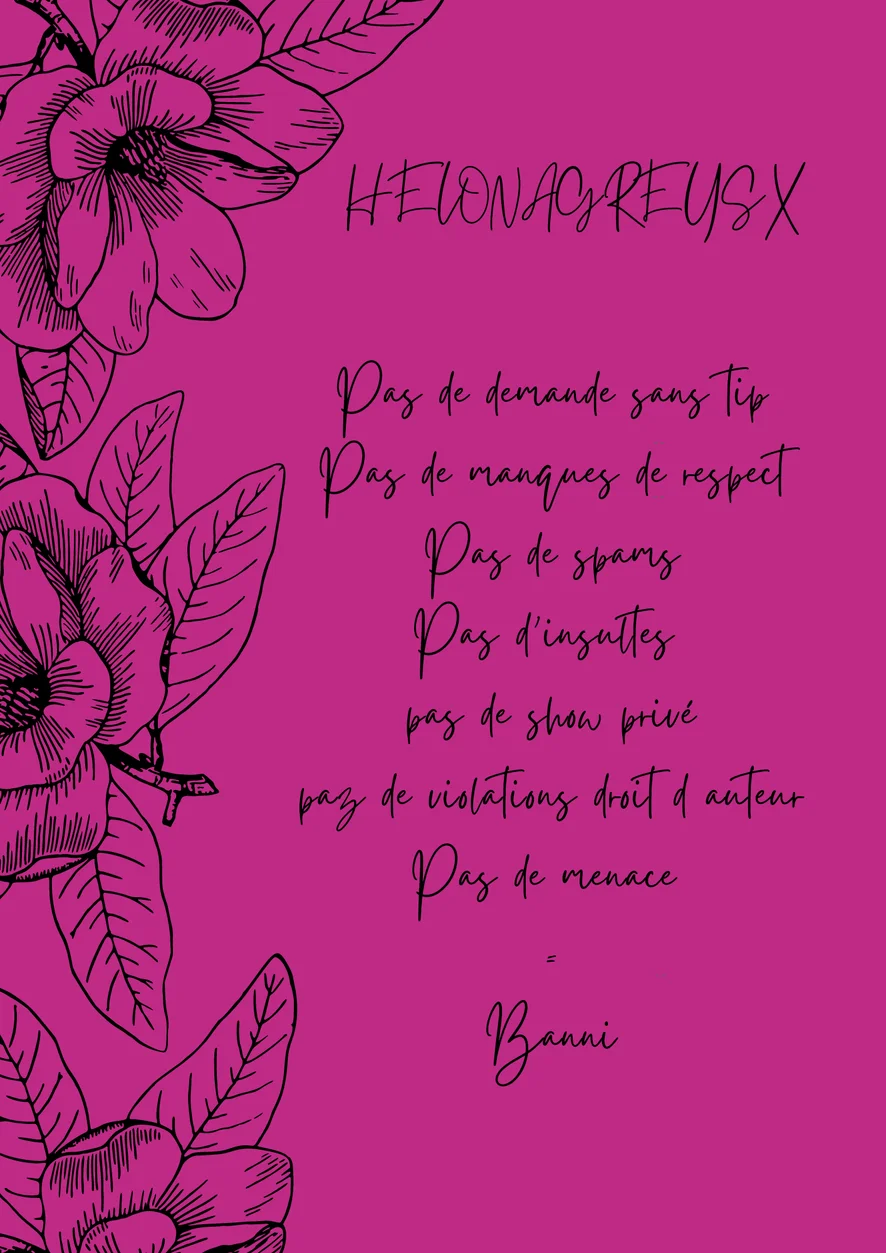 HELONAGREYSX
Pas de demande sans tip
Pas de manques de respect
Pas de spams
Pas d'insultes
pas de show privé
paz de violations droit d auteur
Pas de menace
=
Banni